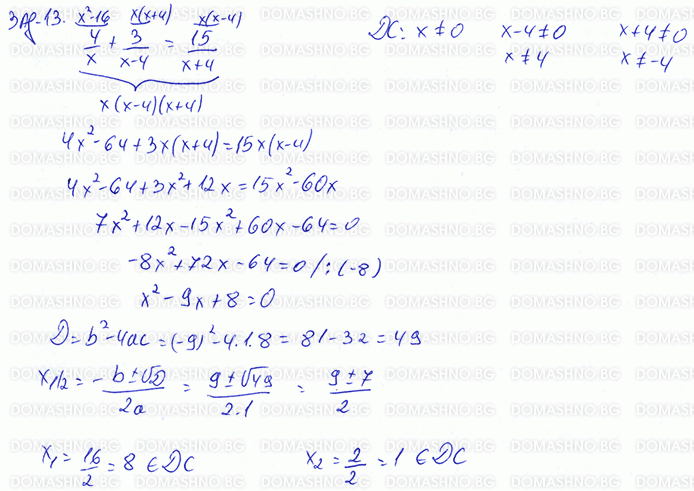 Зад. 13. x²-16 x(x+4) x(x-4)
4/x + 3/(x-4) = 15/(x+4)
x(x-4)(x+4)
DC: x≠0 x-4≠0 x+4≠0
x≠4 x≠-4
4x²-64+3x(x+4)=15x(x-4)
4x²-64+3x²+12x=15x²-60x
7x²+12x-15x²+60x-64=0
-8x²+72x-64=0 /:(-8)
x²-9x+8=0
D=b²-4ac=(-9)²-4.1.8=81-32=49
x₁/₂ = (-b±√D)/2a = (9±√49)/2.1 = (9±7)/2
x₁ = 16/2 = 8 ∈ DC x₂ = 2/2 = 1 ∈ DC
DOMASHNO.BG